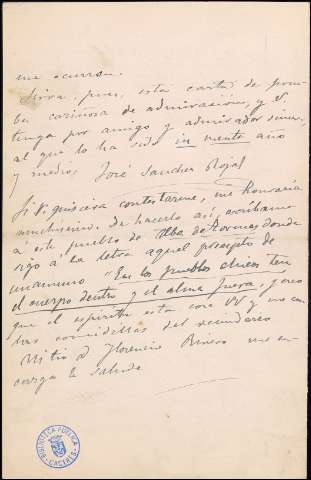 me ocurren.
Sirva, pues, esta carta de prue-
ba cariñosa de admiración, y V.
tenga por amigo y admirador sincero,
al que lo ha sido in mente año
y medio, José Sanchez Rojas
Si V. quisiera contestarme, me honraría
muchísimo. De hacerlo así, escríbame
á este pueblo de Alba de Tormes donde
sigo á la letra aquel precepto de
Unamuno "En los pueblos chicos ten
el cuerpo dentro y el alma fuera, y creo
que el espíritu esta con VV y no con
las comidillas del
Mi tio D Florencio me en-
carga le salude
BIBLIOTECA PÚBLICA
CÁCERES